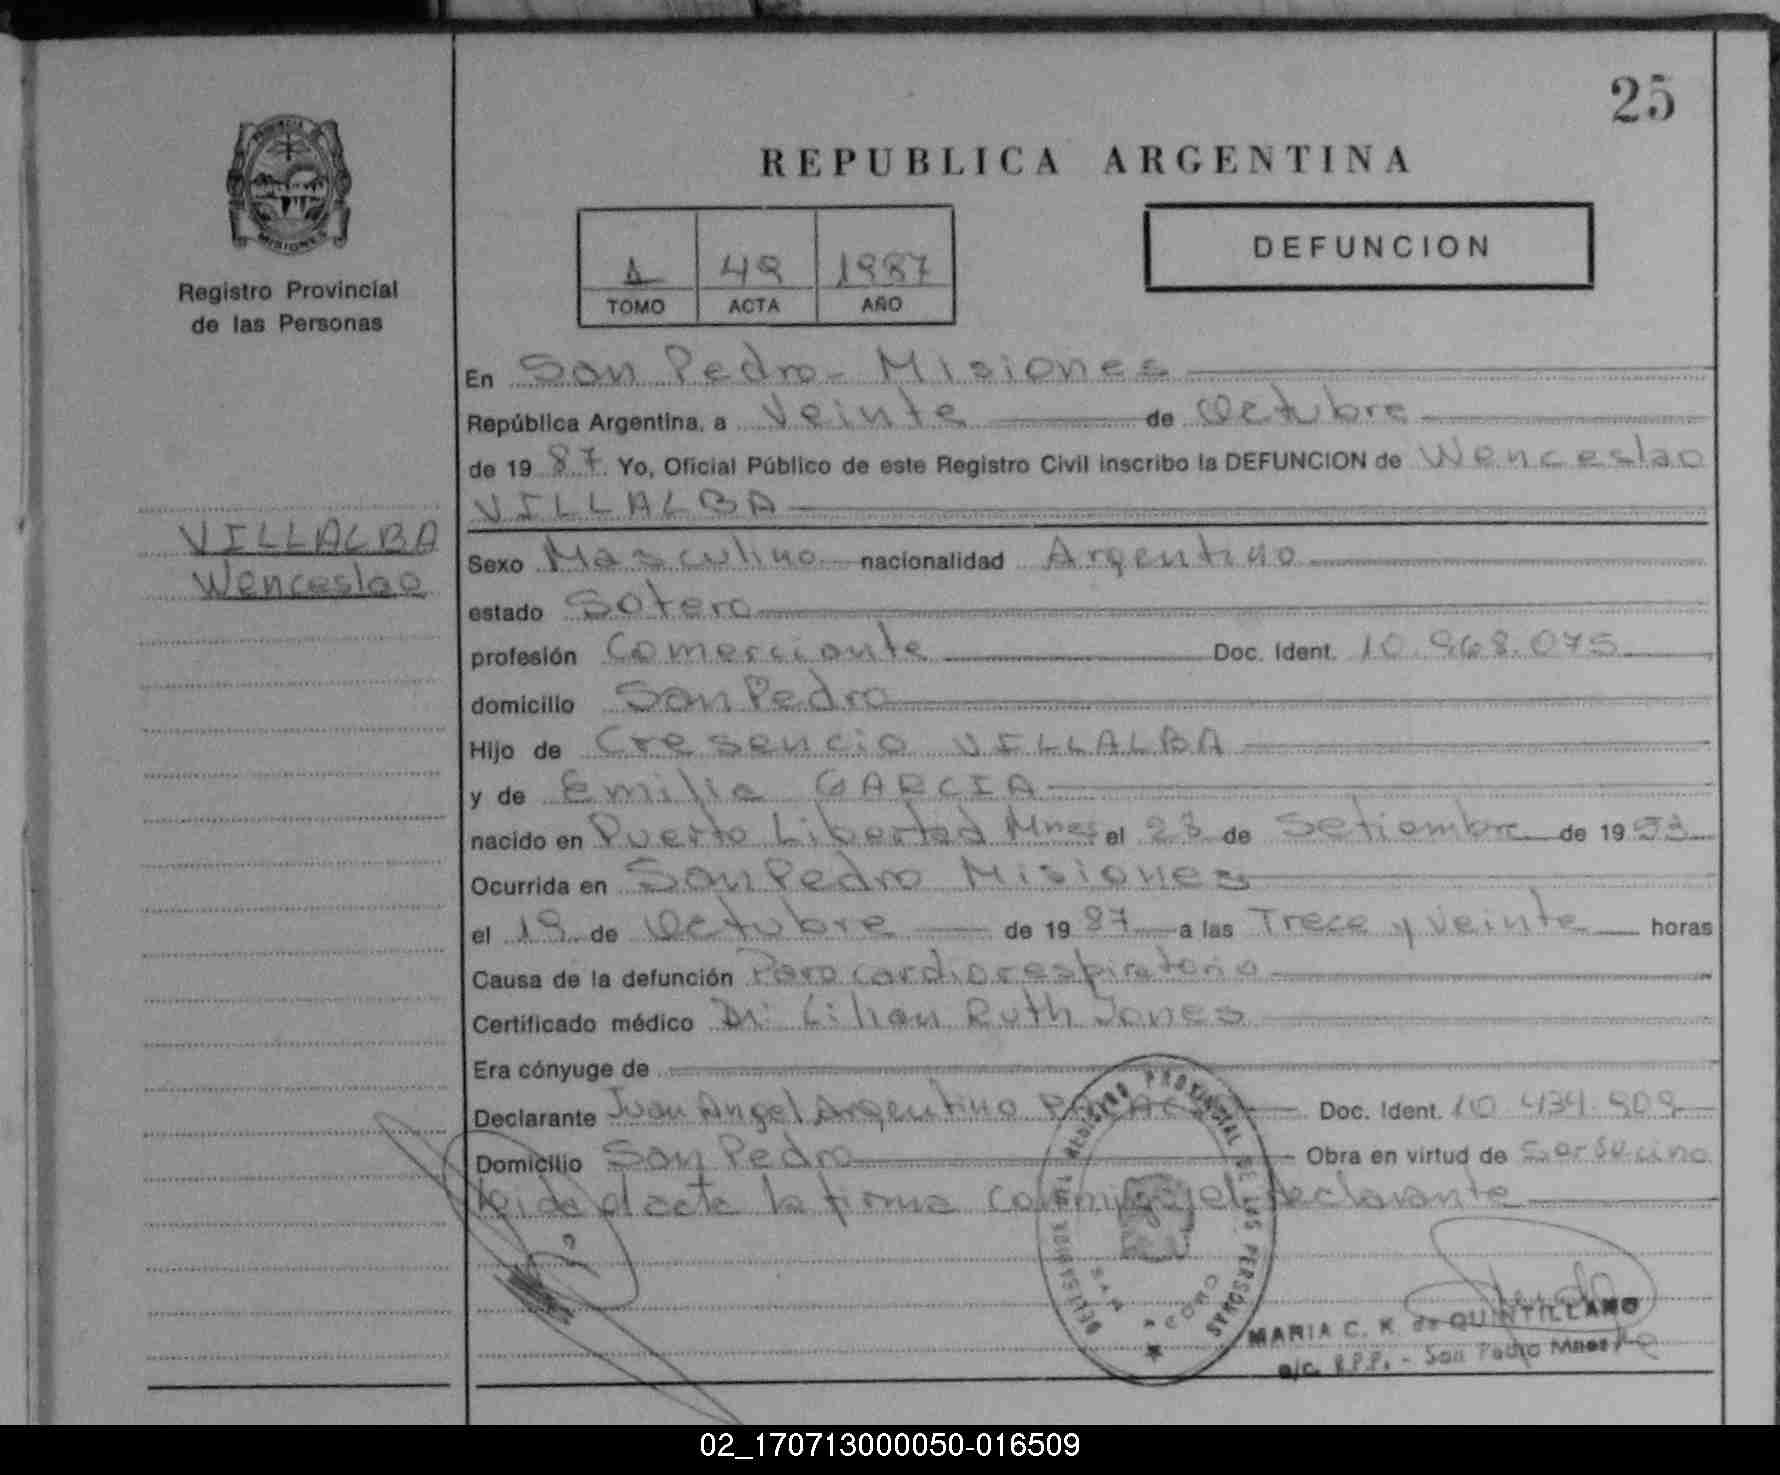 25
REPUBLICA ARGENTINA
PROVINCIA
MISIONES
Registro Provincial
de las Personas
1987
TOMO ACTA AÑO
DEFUNCION
En San Pedro - Misiones
República Argentina, a Veinte de Octubre
de 19 87 Yo, Oficial Público de este Registro Civil inscribo la DEFUNCION de Wenceslao
VILLALBA
VILLALBA
Wenceslao
Sexo Masculino nacionalidad Argentino
estado Sotero
profesión Comerciante Doc. Ident. 10.968.075
domicilio San Pedro
Hijo de Cresencio VILLALBA
y de Emilia GARCIA
nacido en Puerto Libertad Mnes el 23 de Setiembre de 19 53
Ocurrida en San Pedro Misiones
el 19 de Octubre de 19 87 a las Trece y Veinte horas
Causa de la defunción Paro cardiorespiratorio
Certificado médico Dr. Lilian Ruth Jones
Era cónyuge de
Declarante Juan Angel Argentino Doc. Ident. 10.434.909
Domicilio San Pedro Obra en virtud de
Leida el acta la firma conmigo el declarante
REGISTRO PROVINCIAL DE LAS PERSONAS
MARIA C. K. de QUINTILLANO
a/c. R.P.P. - San Pedro Mnes
02_170713000050-016509